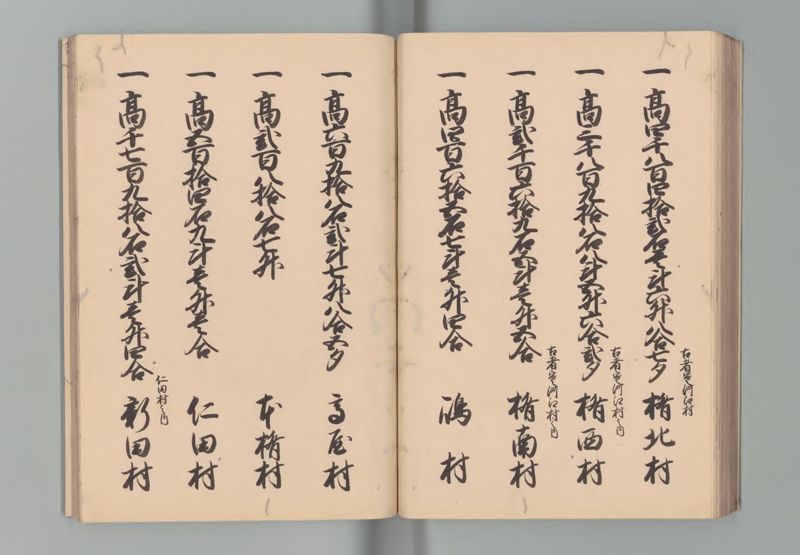 古者寒河江村
一 高四千八百四拾弐石壱斗六升八合七夕 楯北村
古者寒河江村之内
一 高二千八百九拾八石八斗五升六合弐夕 楯西村
古者寒河江村之内
一 高弐千百六拾九石六斗壱升五合 楯南村
一 高四百六拾五石七斗壱升四合 嶋村
一 高六百九拾八石弐斗七升八合五夕 高屋村
一 高弐百八拾八石七升 本楯村
一 高五百拾四石九斗壱升壱合 仁田村
仁田村之内
一 高千七百九拾八石弐斗壱升四合 新田村